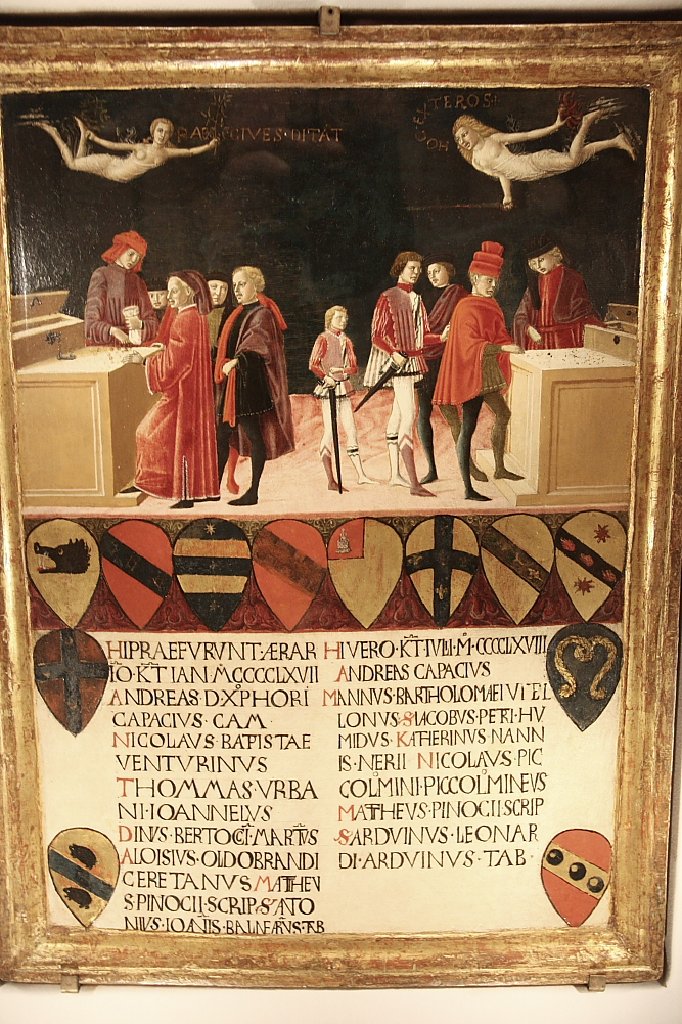 PAX CIVES·DITAT
EXTEROS
HOC
HI PRAEFVRVNT ÆRAR
IO·KT IAN·M̊CCCCLXVII
ANDREAS·D·XPHORI
CAPACIVS·CAM
NICOLAVS·BATISTAE
VENTVRINVS
THOMMAS·VRBA
NI·IOANNELVS
DINVS·BERTOCCI·MARTVS
ALOISIVS·OLDOBRANDI
CERETANVS MATHEV
S PINOCII·SCRIP·S ATO
NIVS·IOANIS·BALNEANS·TAB
HI VERO·KT·IVLI·M̊·CCCCLXVIII
ANDREAS CAPACIVS
MANNVS·BARTHOLOMAEI VITEL
LONVS·SIACOBVS·PETRI·HV
MIDVS·KATHERINVS·NANN
IS·NERII·NICOLAVS·PIC
COLMINI·PICCOLMINEVS
MATHEVS·PINOCII SCRIP
SARDVINVS·LEONAR
DI·ARDVINVS·TAB·